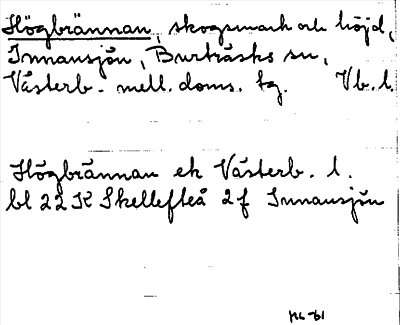 Högbrännan, skogsmark och höjd,
Innansjön, Burträsks sn,
Västerb. mell. doms. tg. Vb. l.
Högbrännan ek Västerb. l.
bl 22 K Skellefteå 2f Innansjön